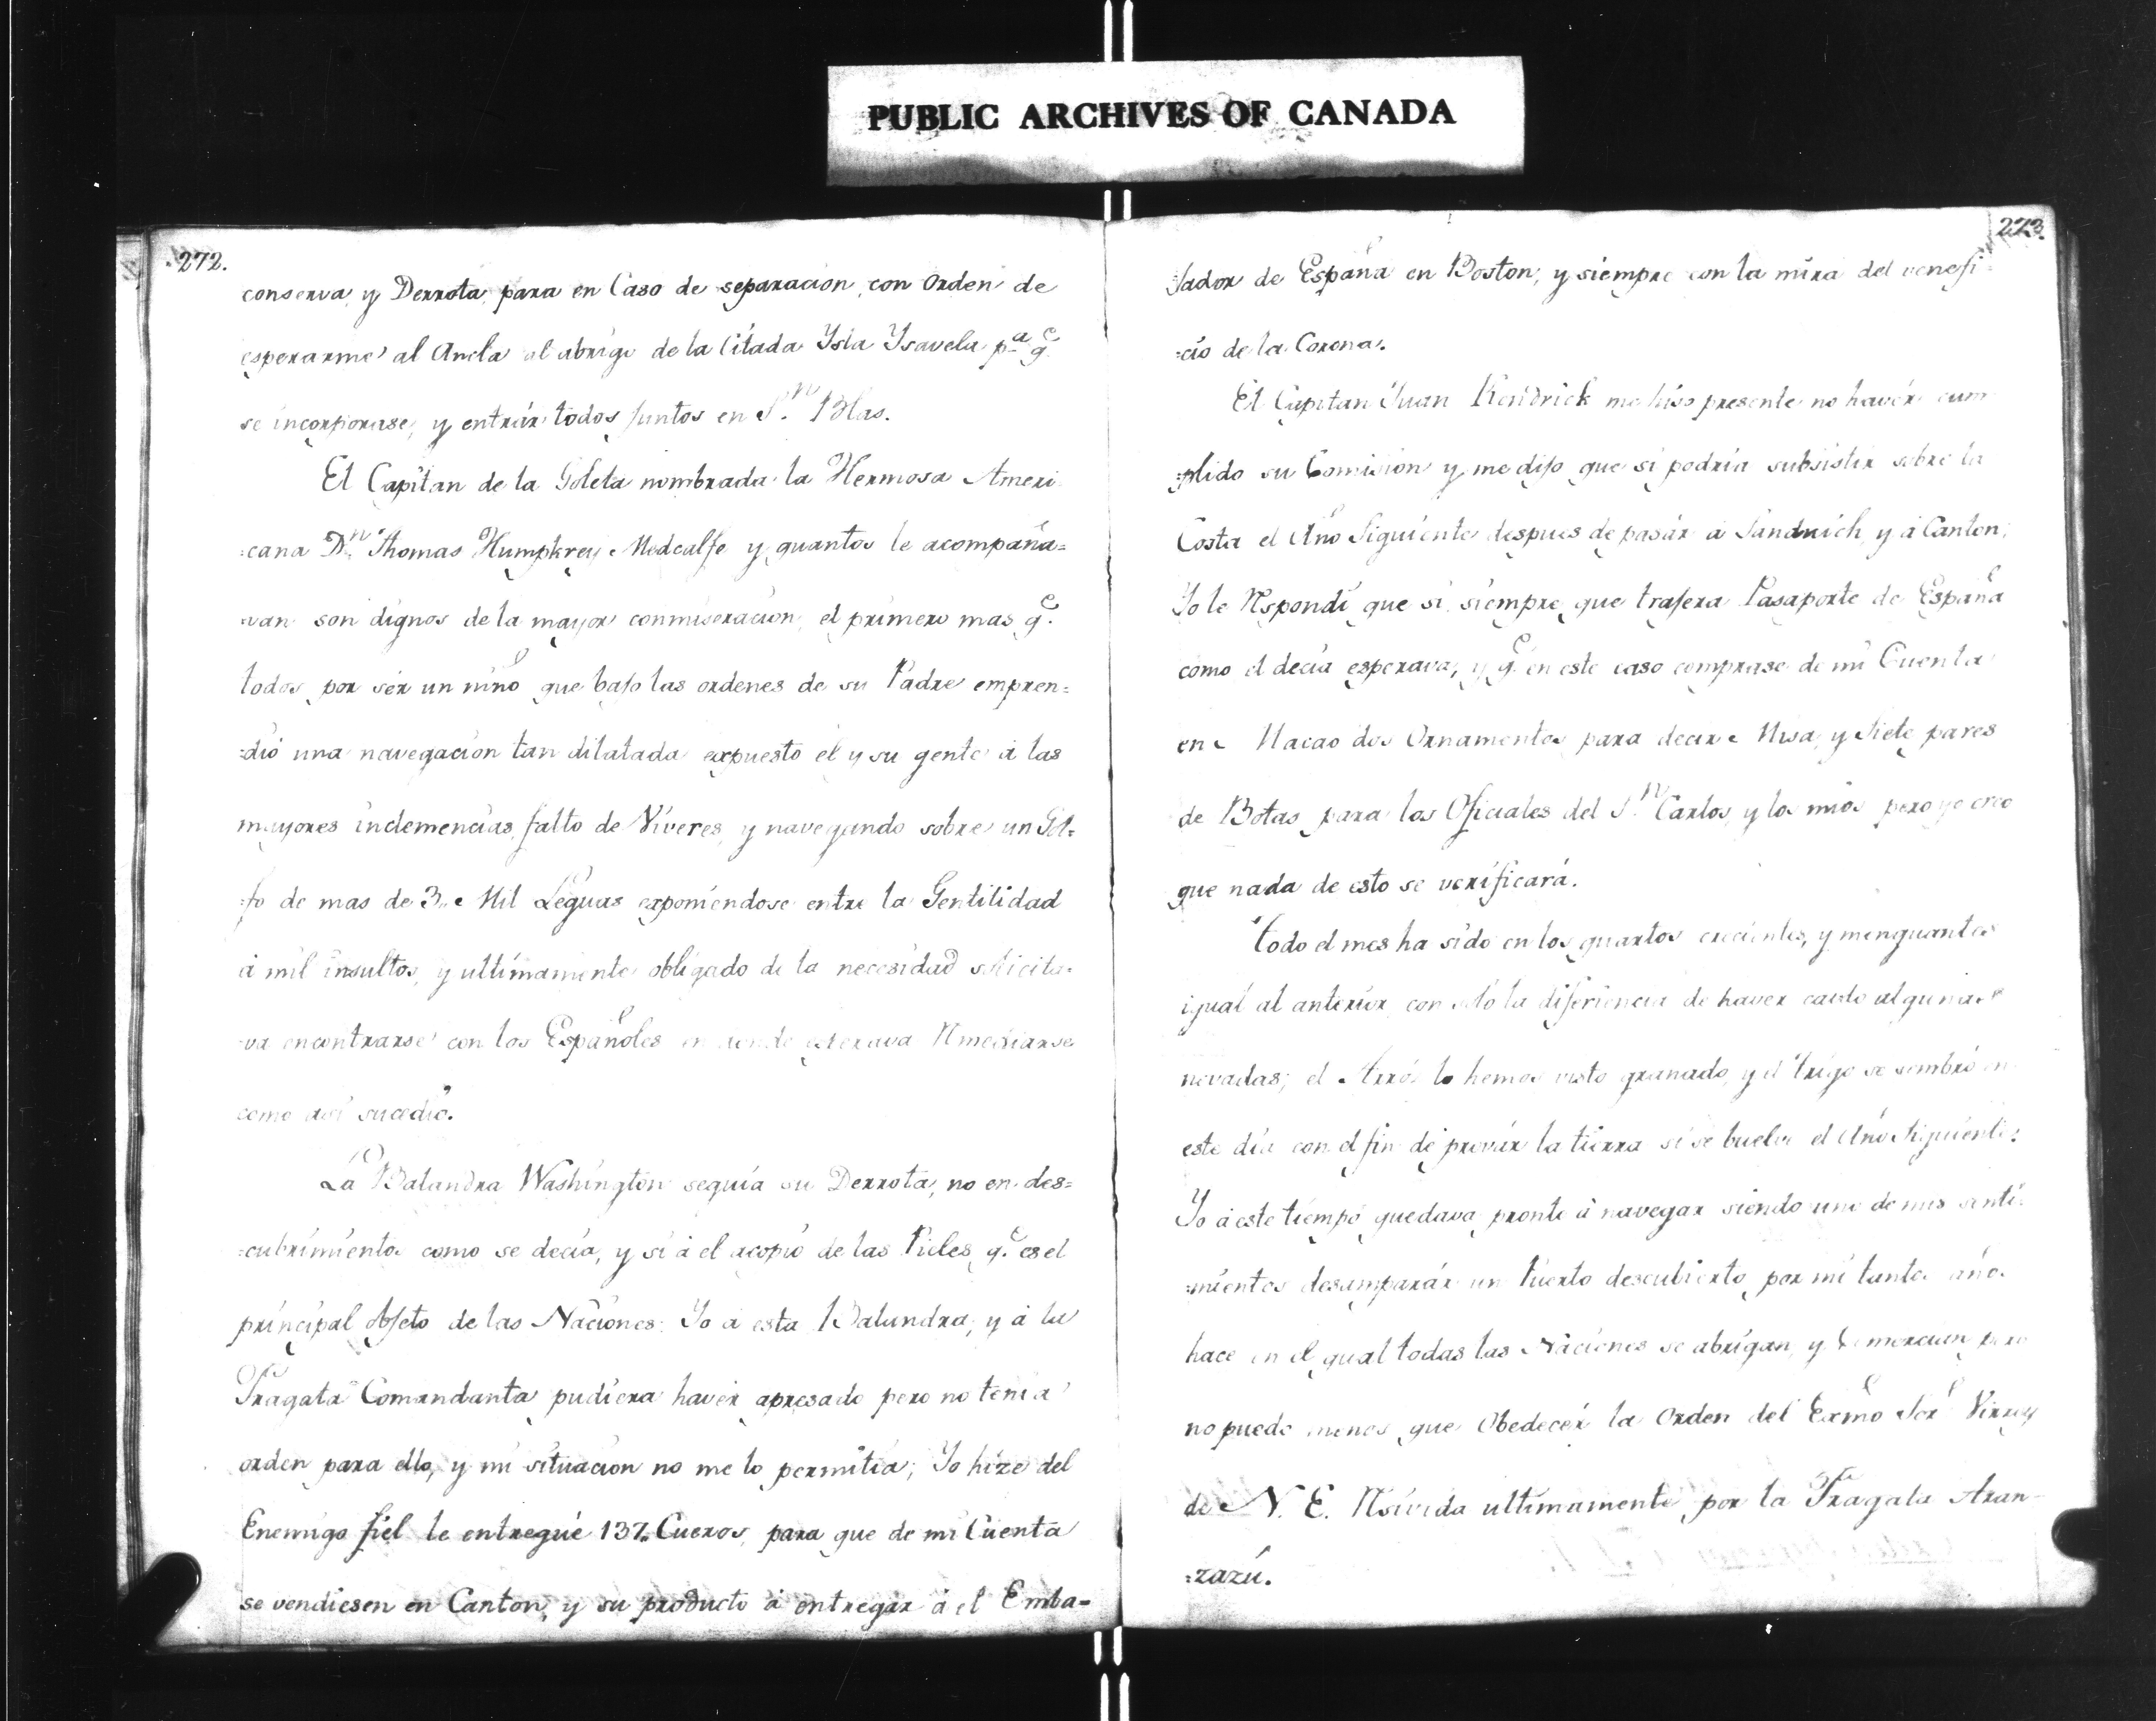 PUBLIC ARCHIVES OF CANADA
272.
conserva, y Derrota, para en Caso de separacion, con orden de
esperarme al Ancla al abrigo de la Citada Ysla Ysavela pa. qe.
se incorporase, y entrár todos juntos en Sn. Blas.
El Capitan de la Goleta nombrada la Hermosa Ameri
=cana Dn. Thomas Humpkrey Medcalfe y quantos le acompaña=
van son dignos de la mayor conmiseracion, el primero mas qe.
todos, por ser un niño que bajo las ordenes de su Padre empren=
=dió una navegacion tan dilatada expuesto él y su gente á las
mayores inclemencias, falto de Víveres, y navegando sobre un Gol=
=fo de mas de 3,, Mil Leguas exponiendose entre la Gentilidad
á mil insultos, y ultimamente obligado de la necesidad solicita=
va encontrarse con los Españoles en donde esperava Remediarse
como así sucedió.
La Balandra Washington seguía su Derrota, no en des=
=cubrimientos como se decía, y sí á el acopio de las Pieles qe. es el
principal objeto de las Naciones: Yo á esta Balandra, y á la
Fragata Comandanta pudiera haver apresado pero no tenía
orden para ello, y mi situacion no me lo permitía; Yo hize del
Enemigo fiel le entregué 137,, Cueros, para que de mi Cuenta
se vendiesen en Canton, y su producto á entregar á el Emba=
273.
jador de España en Boston, y siempre con la mira del venefi=
=cio de la Corona.
El Capitan Juan Kendrick me hiso presente no havér cum
=plido su Comision y me dijo que si podría subsistir sobre la
Costa el Año Siguiente despues de pasár á Sandwich, y á Canton;
Yo le Respondí que si siempre que trajera Pasaporte de España
como el decía esperava, y qe. en este caso comprase de mi Cuenta
en Macao dos Ornamentos para decir Misa, y Siete pares
de Botas para los Oficiales del Sn. Carlos, y los mios pero yo creo
que nada de esto se verificará.
Todo el mes ha sido en los quartos crecientes, y menguantes
igual al anterior con sólo la diferiencia de haver caido algunas
nevadas; el Arrós lo hemos visto granado, y el trigo se sembró en
este día con el fin de provár la tierra si se buelve el Año Siguiente:
Yo á este tiempo quedava pronto á navegar siendo uno de mis senti=
=mientos desamparár un Puerto descubierto por mi tantos años
hace en el qual todas las Naciones se abrigan, y Comercian pero
no puedo menos que Obedecér la Orden del Exmo Sor Virrey
de N. E. Resivida ultimamente por la Fragata Aran-
=zazú.